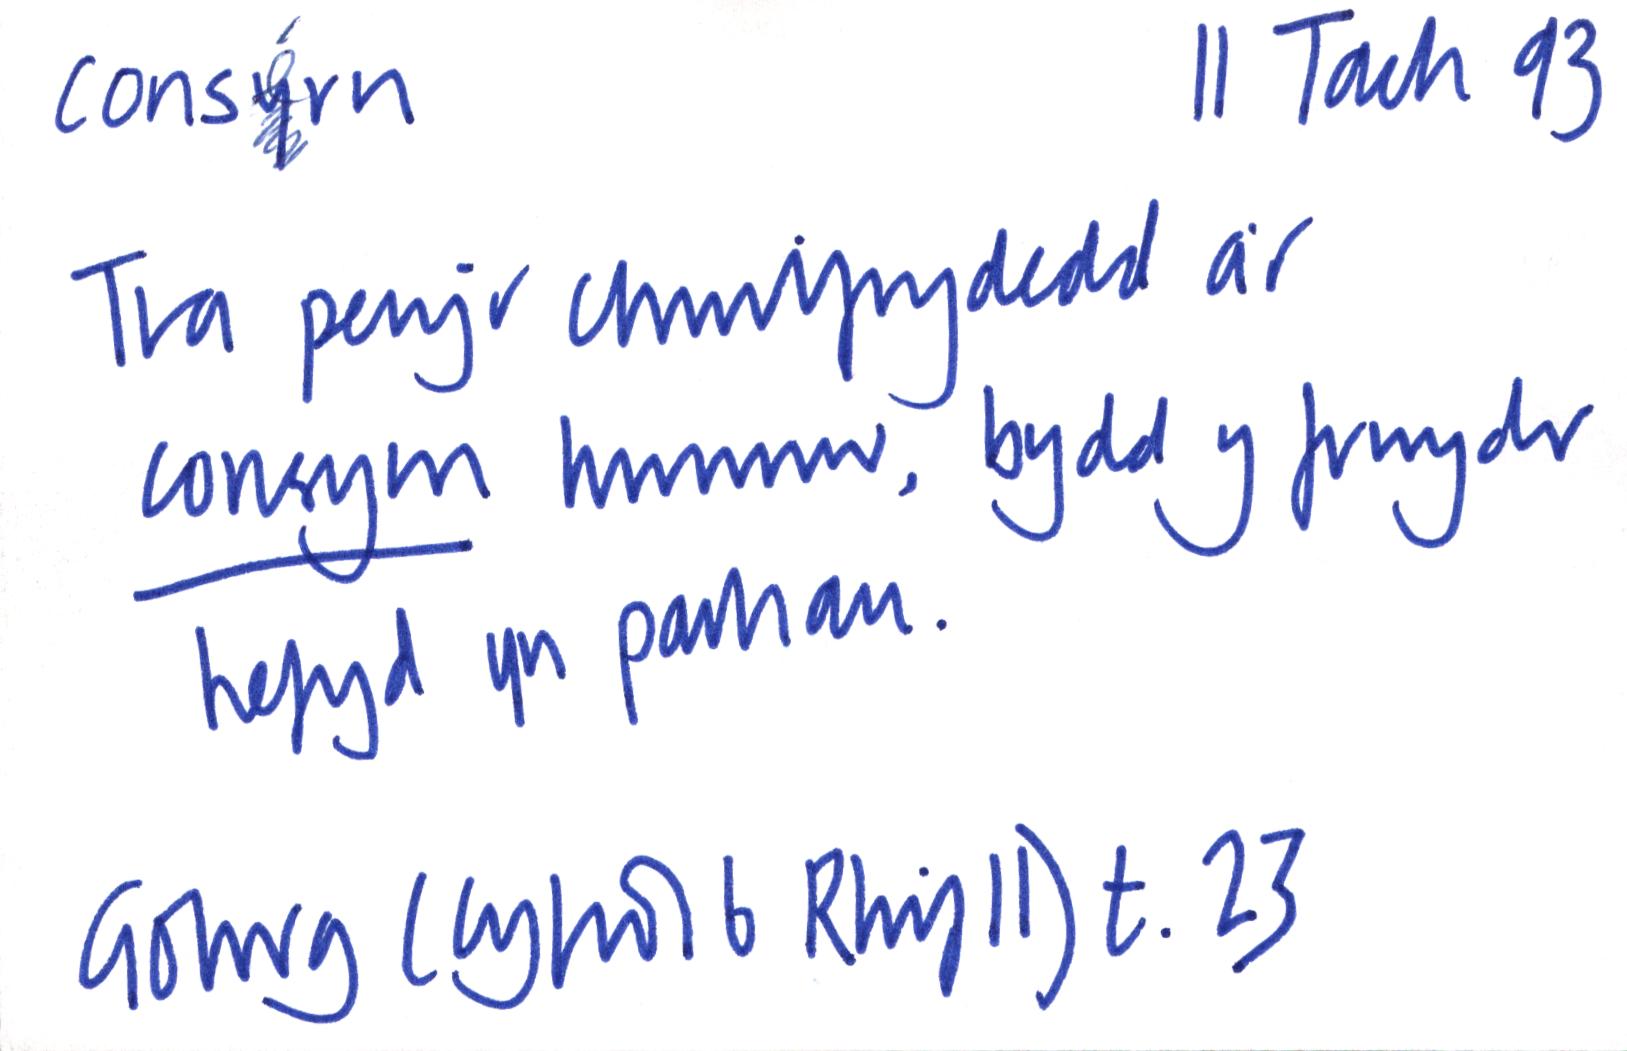 consýrn 11 Tach 93
Tra pery'r chwilfrydedd a'r
consyrn hwnnw, bydd y frwydr
hefyd yn parhau.
Golwg (Cyfrol 6 Rhif 11) t. 23